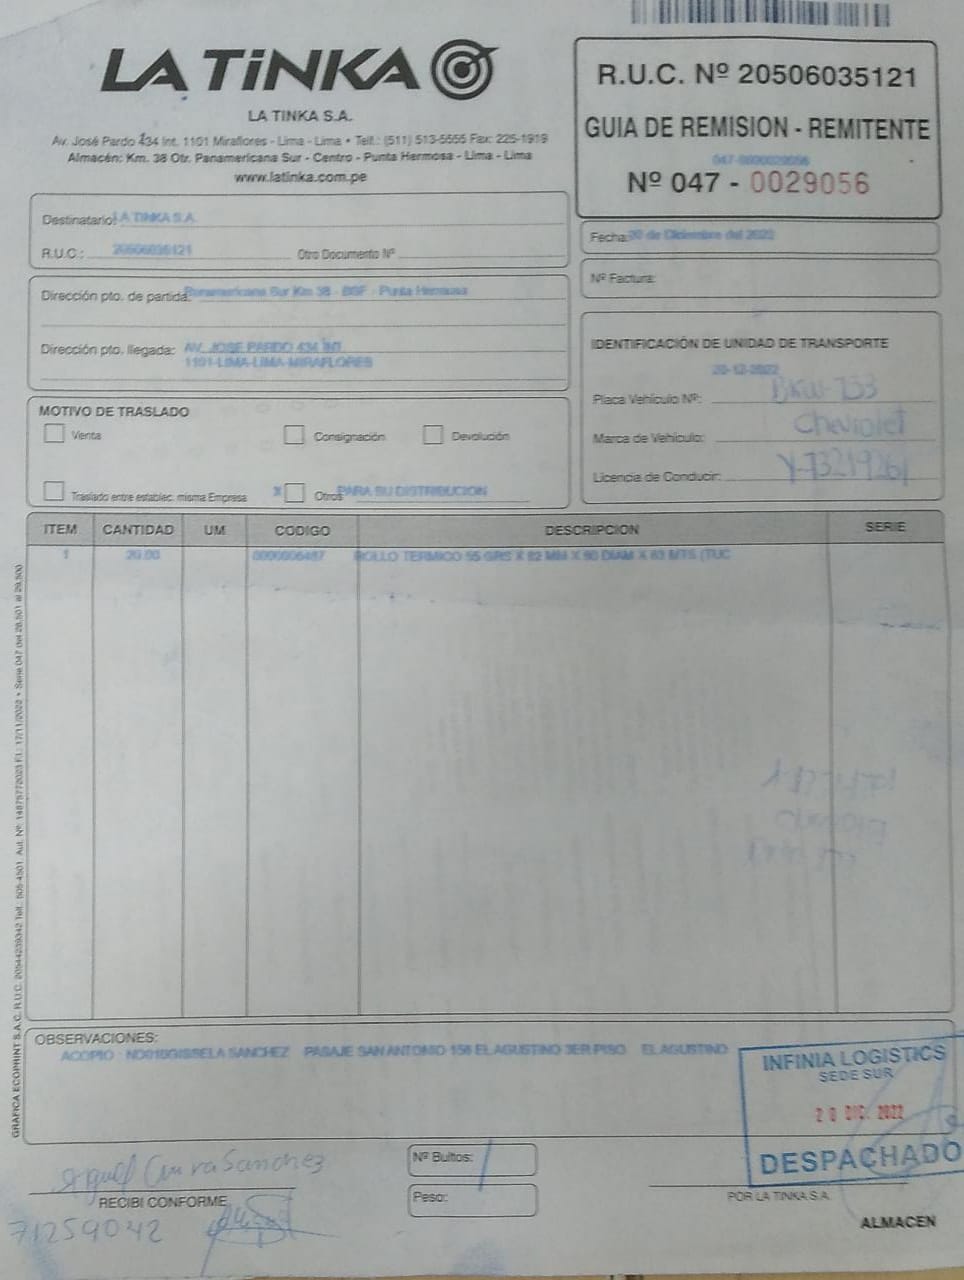 LA TiNKA
LA TINKA S.A.
Av. José Pardo 434 Int. 1101 Miraflores - Lima - Lima • Telf.: (511) 513-5555 Fax: 225-1919
Almacén: Km. 38 Otr. Panamericana Sur - Centro - Punta Hermosa - Lima - Lima
www.latinka.com.pe
R.U.C. Nº 20506035121
GUIA DE REMISION - REMITENTE
047-0000029056
Nº 047 - 0029056
Destinatario: LA TINKA S.A.
R.U.C.: 20506035121 Otro Documento Nº
Fecha: 20 de Diciembre del 2022
Nº Factura:
Dirección pto. de partida: Panamericana Sur Km 38 - BSF - Punta Hermosa
Dirección pto. llegada: AV. JOSE PARDO 434 INT.
1101-LIMA-LIMA-MIRAFLORES
IDENTIFICACIÓN DE UNIDAD DE TRANSPORTE
20-12-2022
Placa Vehículo Nº: BKW-753
Marca de Vehículo: Chevrolet
Licencia de Conducir: Y-73219261
MOTIVO DE TRASLADO
Venta Consignación Devolución
Traslado entre establec. misma Empresa X Otros PARA SU DISTRIBUCION
ITEM CANTIDAD UM CODIGO DESCRIPCION SERIE
1 20.00 0000006487 ROLLO TERMICO 55 GRS X 82 MM X 80 DIAM X 63 MTS (TUC
GRAFICA ECOPRINT S.A.C. R.U.C. 20544239342 Telf.: 505-4501. Aut. Nº: 14875772023 F.I.: 17/11/2022 • Serie 047 del 28,501 al 29,500
OBSERVACIONES:
ACOPIO : ND018GISSELA SANCHEZ PASAJE SAN ANTONIO 156 EL AGUSTINO 3ER PISO EL AGUSTINO
INFINIA LOGISTICS
SEDE SUR
20 DIC. 2022
DESPACHADO
Sanchez
RECIBI CONFORME
71259042
Nº Bultos: 1
Peso:
POR LA TINKA S.A.
ALMACEN